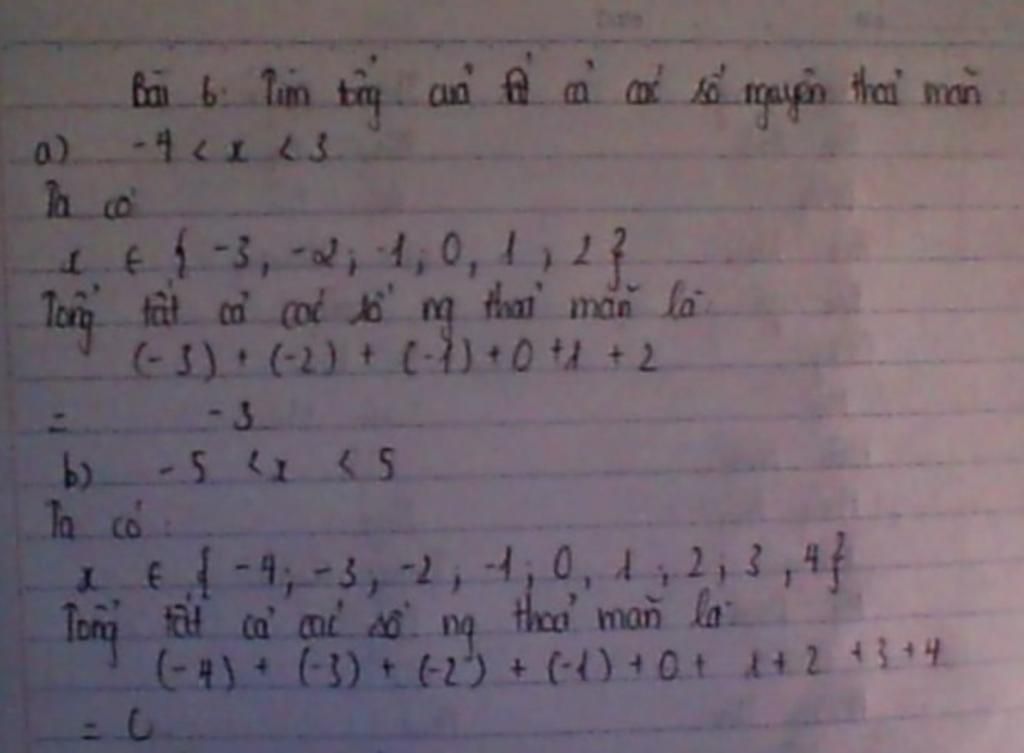 Bài 6: Tìm tổng của tất cả các số nguyên thoả mãn
a) -4 < x < 3
Ta có
x ∈ { -3, -2; -1; 0, 1, 2}
Tổng tất cả các số ng thoả mãn là:
(-3) + (-2) + (-1) + 0 + 1 + 2
= -3
b) -5 < x < 5
Ta có:
x ∈ { -4; -3, -2, -1; 0, 1, 2; 3, 4}
Tổng tất cả các số ng thoả mãn là:
(-4) + (-3) + (-2) + (-1) + 0 + 1 + 2 + 3 + 4
= 0